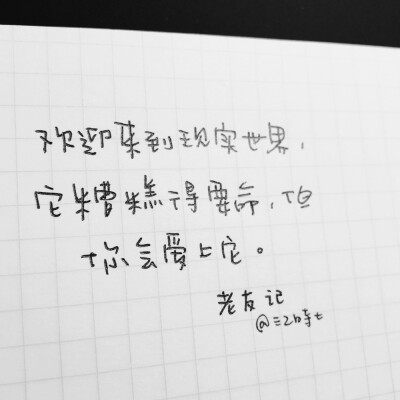 欢迎来到现实世界，
它糟糕得要命，但
你会爱上它。
老友记